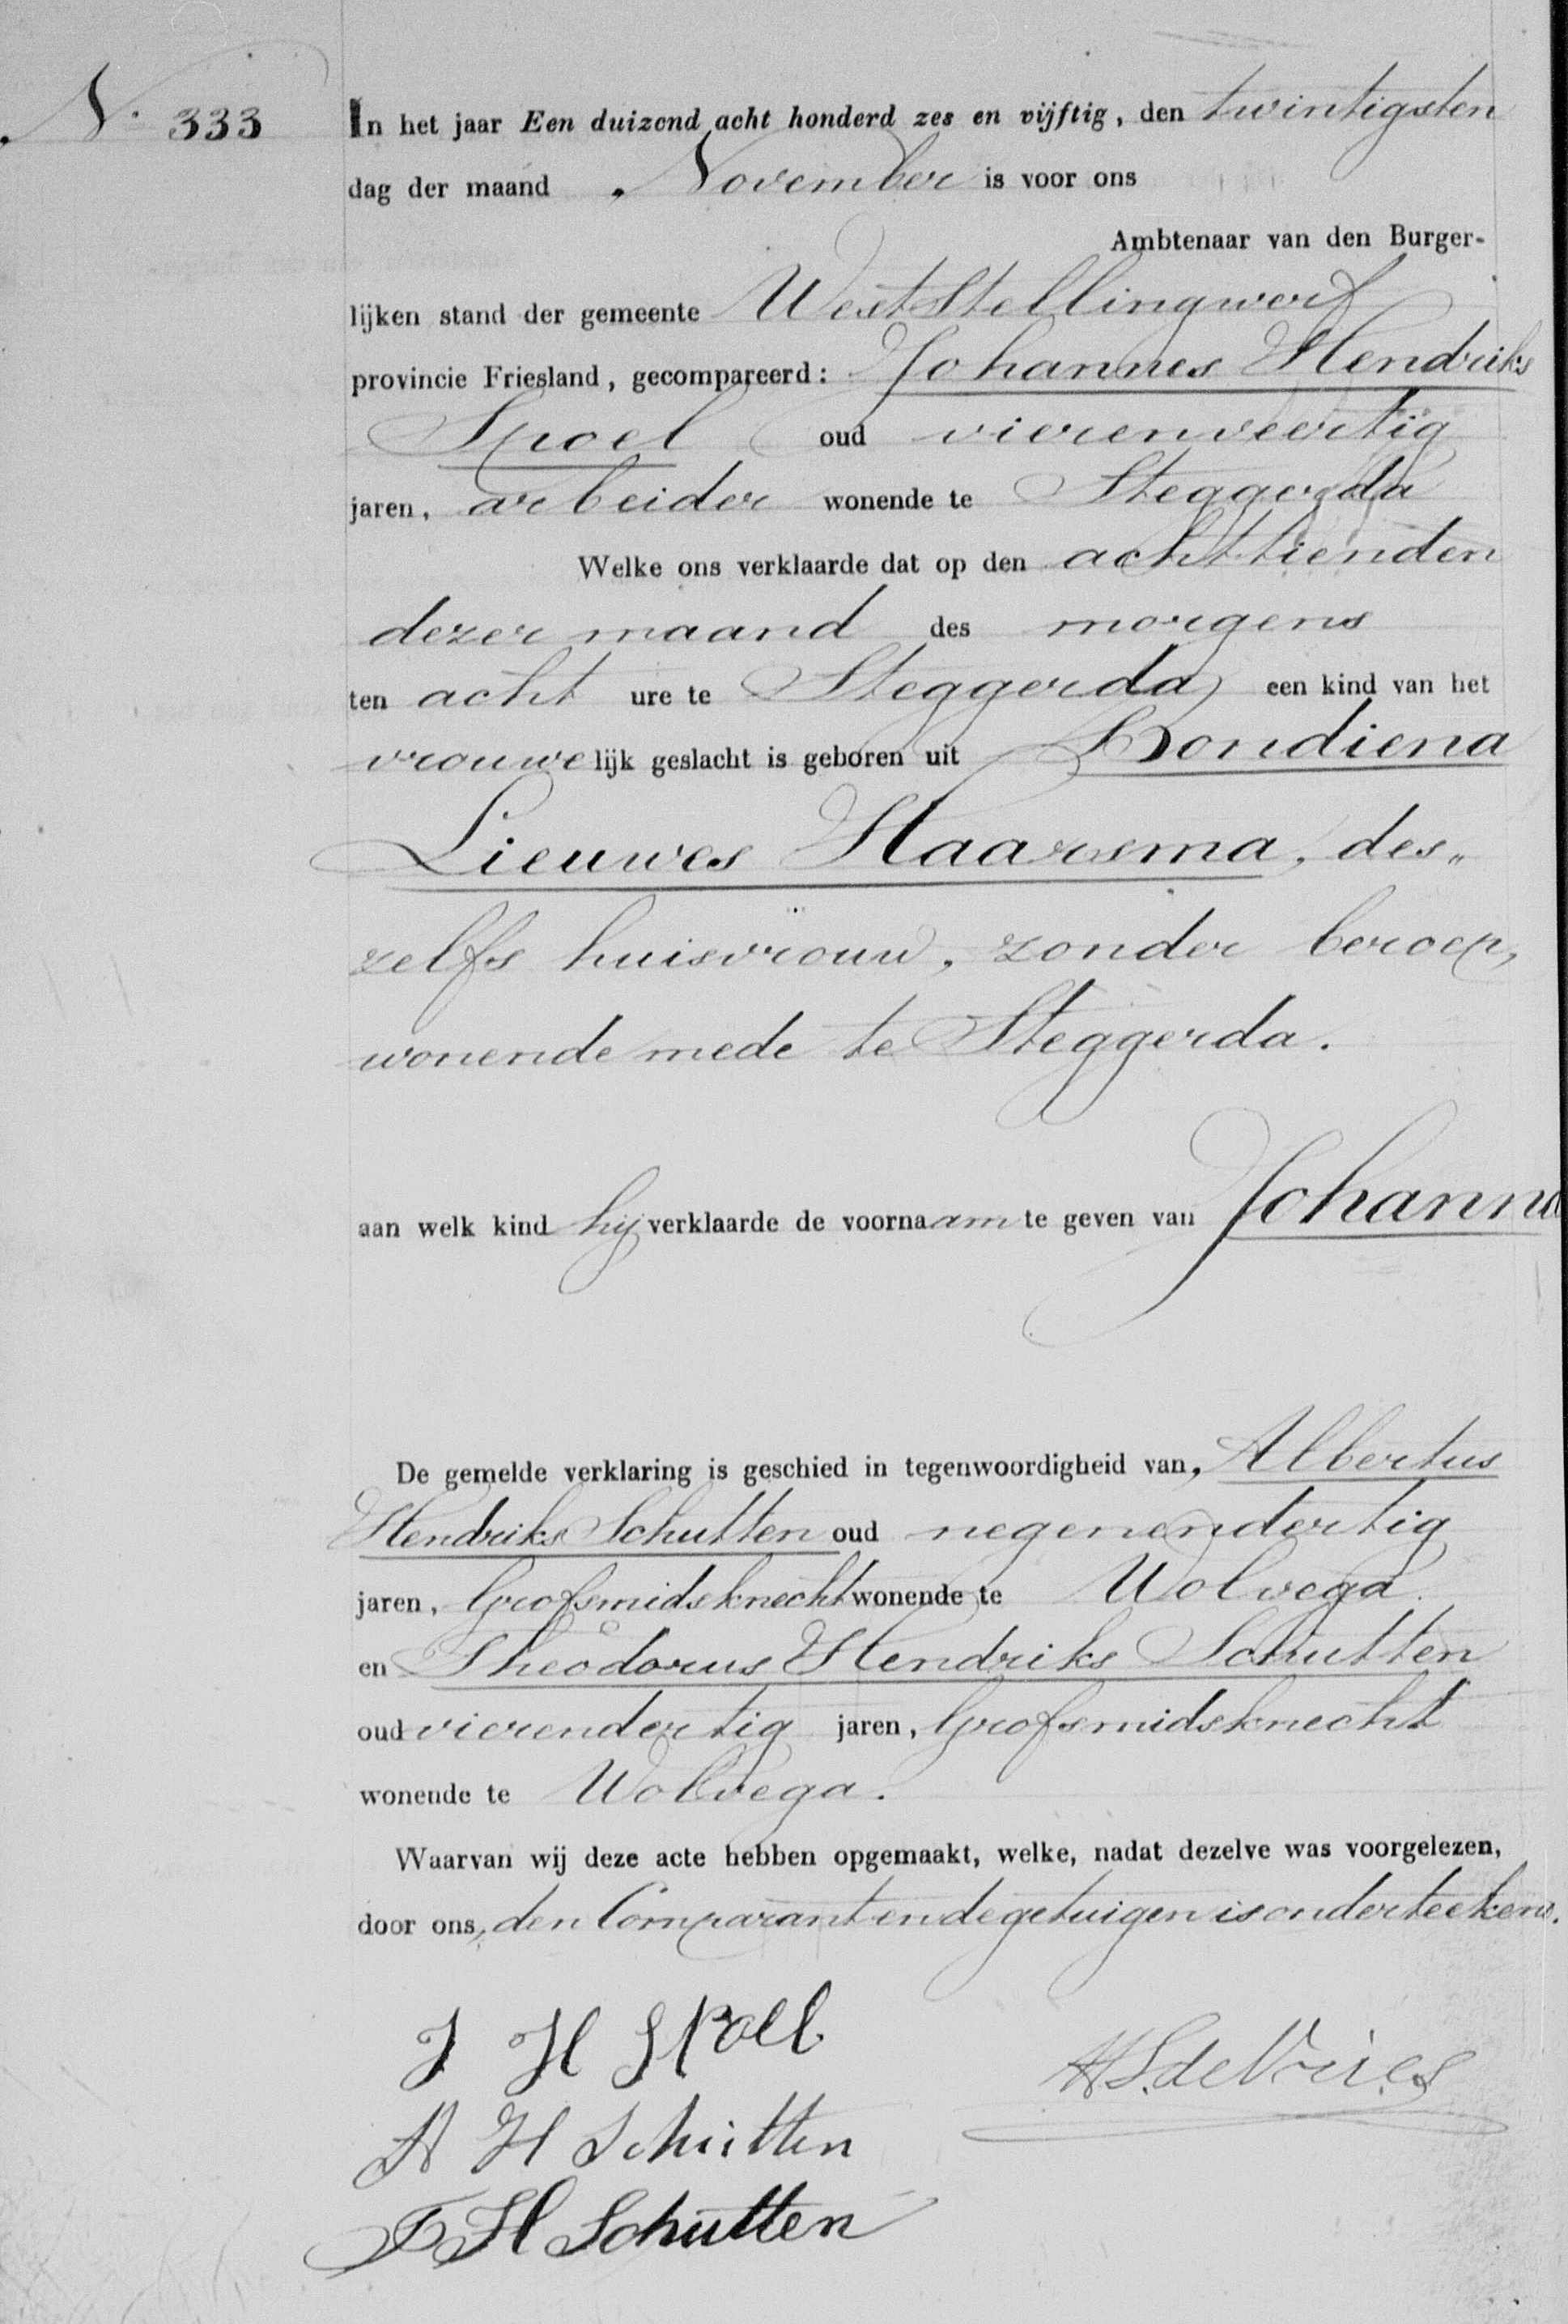 N. 333
In het jaar Een duizend acht honderd zes en vijftig, den twintigsten
dag der maand November is voor ons
Ambtenaar van den Burger-
lijken stand der gemeente WestStellingwerf
provincie Friesland, gecompareerd: Johannes Hendriks
Spoel oud vierenveertig
jaren, arbeider wonende te Steggerda
Welke ons verklaarde dat op den achttienden
dezer maand des morgens
ten acht ure te Steggerda een kind van het
vrouwelijk geslacht is geboren uit Bondiena
Lieuwes Haarsma, des„
zelfs huisvrouw, zonder beroep,
wonende mede te Steggerda.
aan welk kind hij verklaarde de voornaam te geven van Johanna
De gemelde verklaring is geschied in tegenwoordigheid van, Albertus
Hendriks Schutten oud negenendertig
jaren, Grofsmidsknecht wonende te Wolvega
en Theodorus Hendriks Schutten
oud vierendertig jaren, Grofsmidsknecht
wonende te Wolvega.
Waarvan wij deze acte hebben opgemaakt, welke, nadat dezelve was voorgelezen,
door ons, den Comparant en de getuigen is onderteekend.
J H Spoel
HS. de Vries
A H Schutten
T H Schutten